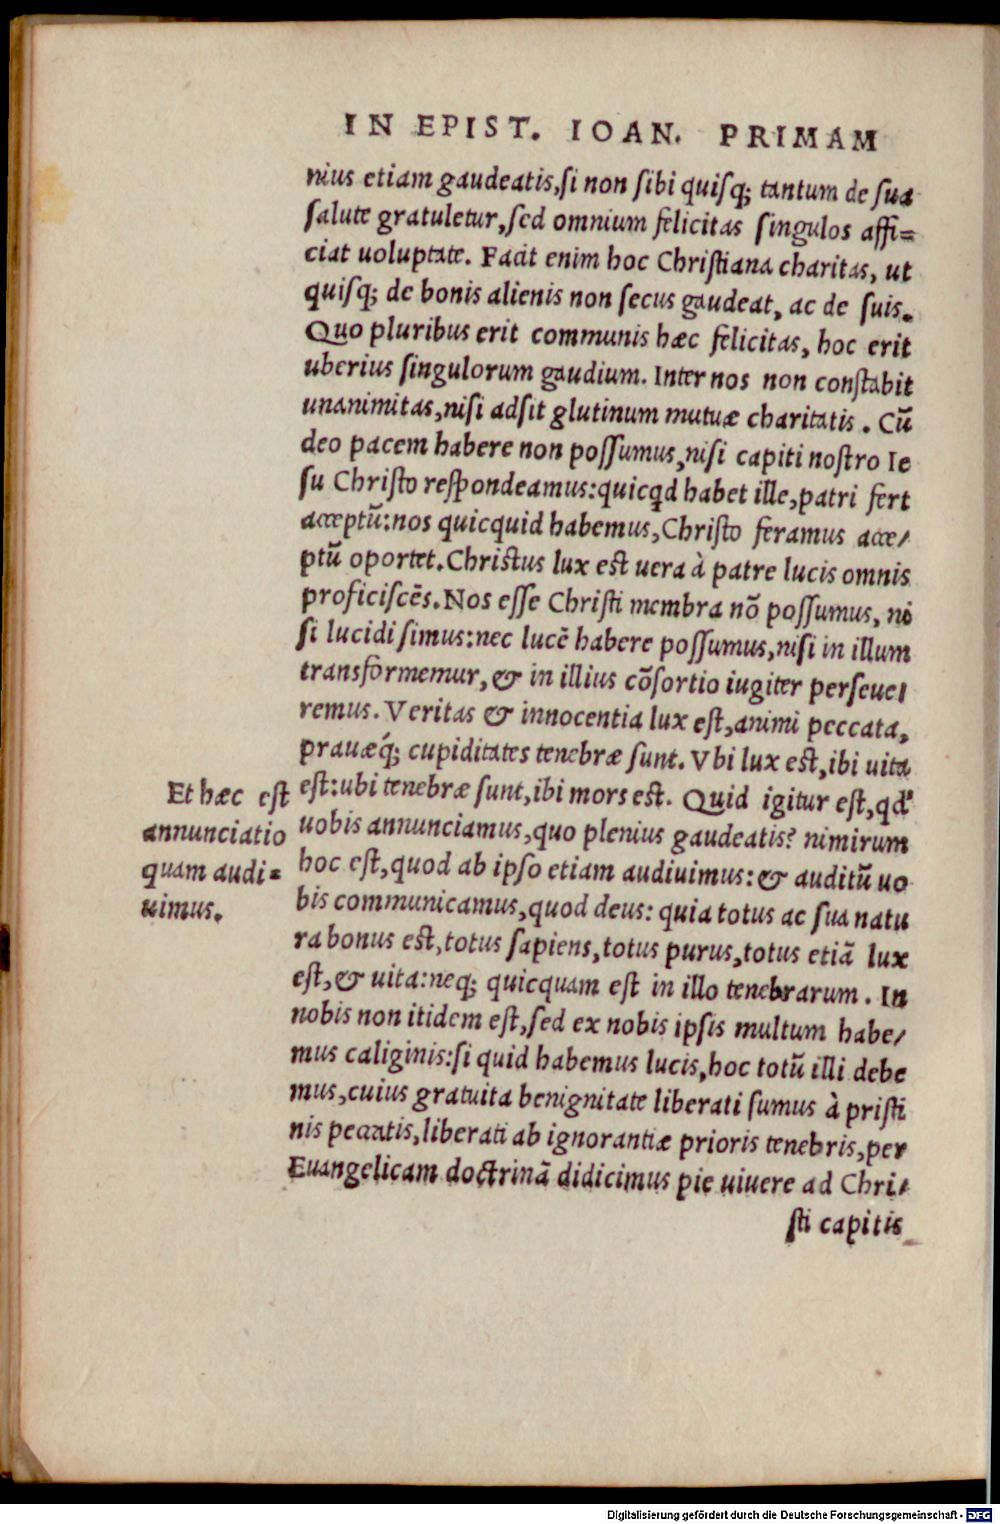 IN EPIST. IOAN. PRIMAM
nius etiam gaudeatis,si non sibi quisq; tantum de sua
salute gratuletur,sed omnium felicitas singulos affi=
ciat uoluptate. Facit enim hoc Christiana charitas, ut
quisq; de bonis alienis non secus gaudeat, ac de suis.
Quo pluribus erit communis hæc felicitas, hoc erit
uberius singulorum gaudium. Inter nos non constabit
unanimitas,nisi adsit glutinum mutuæ charitatis. Cū
deo pacem habere non possumus,nisi capiti nostro Ie
su Christo respondeamus:quicqd habet ille,patri fert
acceptū:nos quicquid habemus,Christo feramus acce/
ptū oportet.Christus lux est uera à patre lucis omnis
proficiscēs.Nos esse Christi membra nō possumus, ni
si lucidi simus:nec lucē habere possumus,nisi in illum
transformemur,& in illius cōsortio iugiter perseue/
remus. Veritas & innocentia lux est,animi peccata,
prauæq́; cupiditates tenebræ sunt. Vbi lux est,ibi uita
est:ubi tenebræ sunt,ibi mors est. Quid igitur est,qd'
uobis annunciamus,quo plenius gaudeatis? nimirum
hoc est,quod ab ipso etiam audiuimus:& auditū uo
bis communicamus,quod deus: quia totus ac sua natu
ra bonus est,totus sapiens,totus purus,totus etiā lux
est,& uita:neq; quicquam est in illo tenebrarum. In
nobis non itidem est,sed ex nobis ipsis multum habe/
mus caliginis:si quid habemus lucis,hoc totū illi debe
mus,cuius gratuita benignitate liberati sumus à pristi
nis peccatis,liberati ab ignorantiæ prioris tenebris,per
Euangelicam doctrinā didicimus pie uiuere ad Chri/
sti capitis
Et hæc est
annunciatio
quam audi=
uimus.
Digitalisierung gefördert durch die Deutsche Forschungsgemeinschaft - DFG